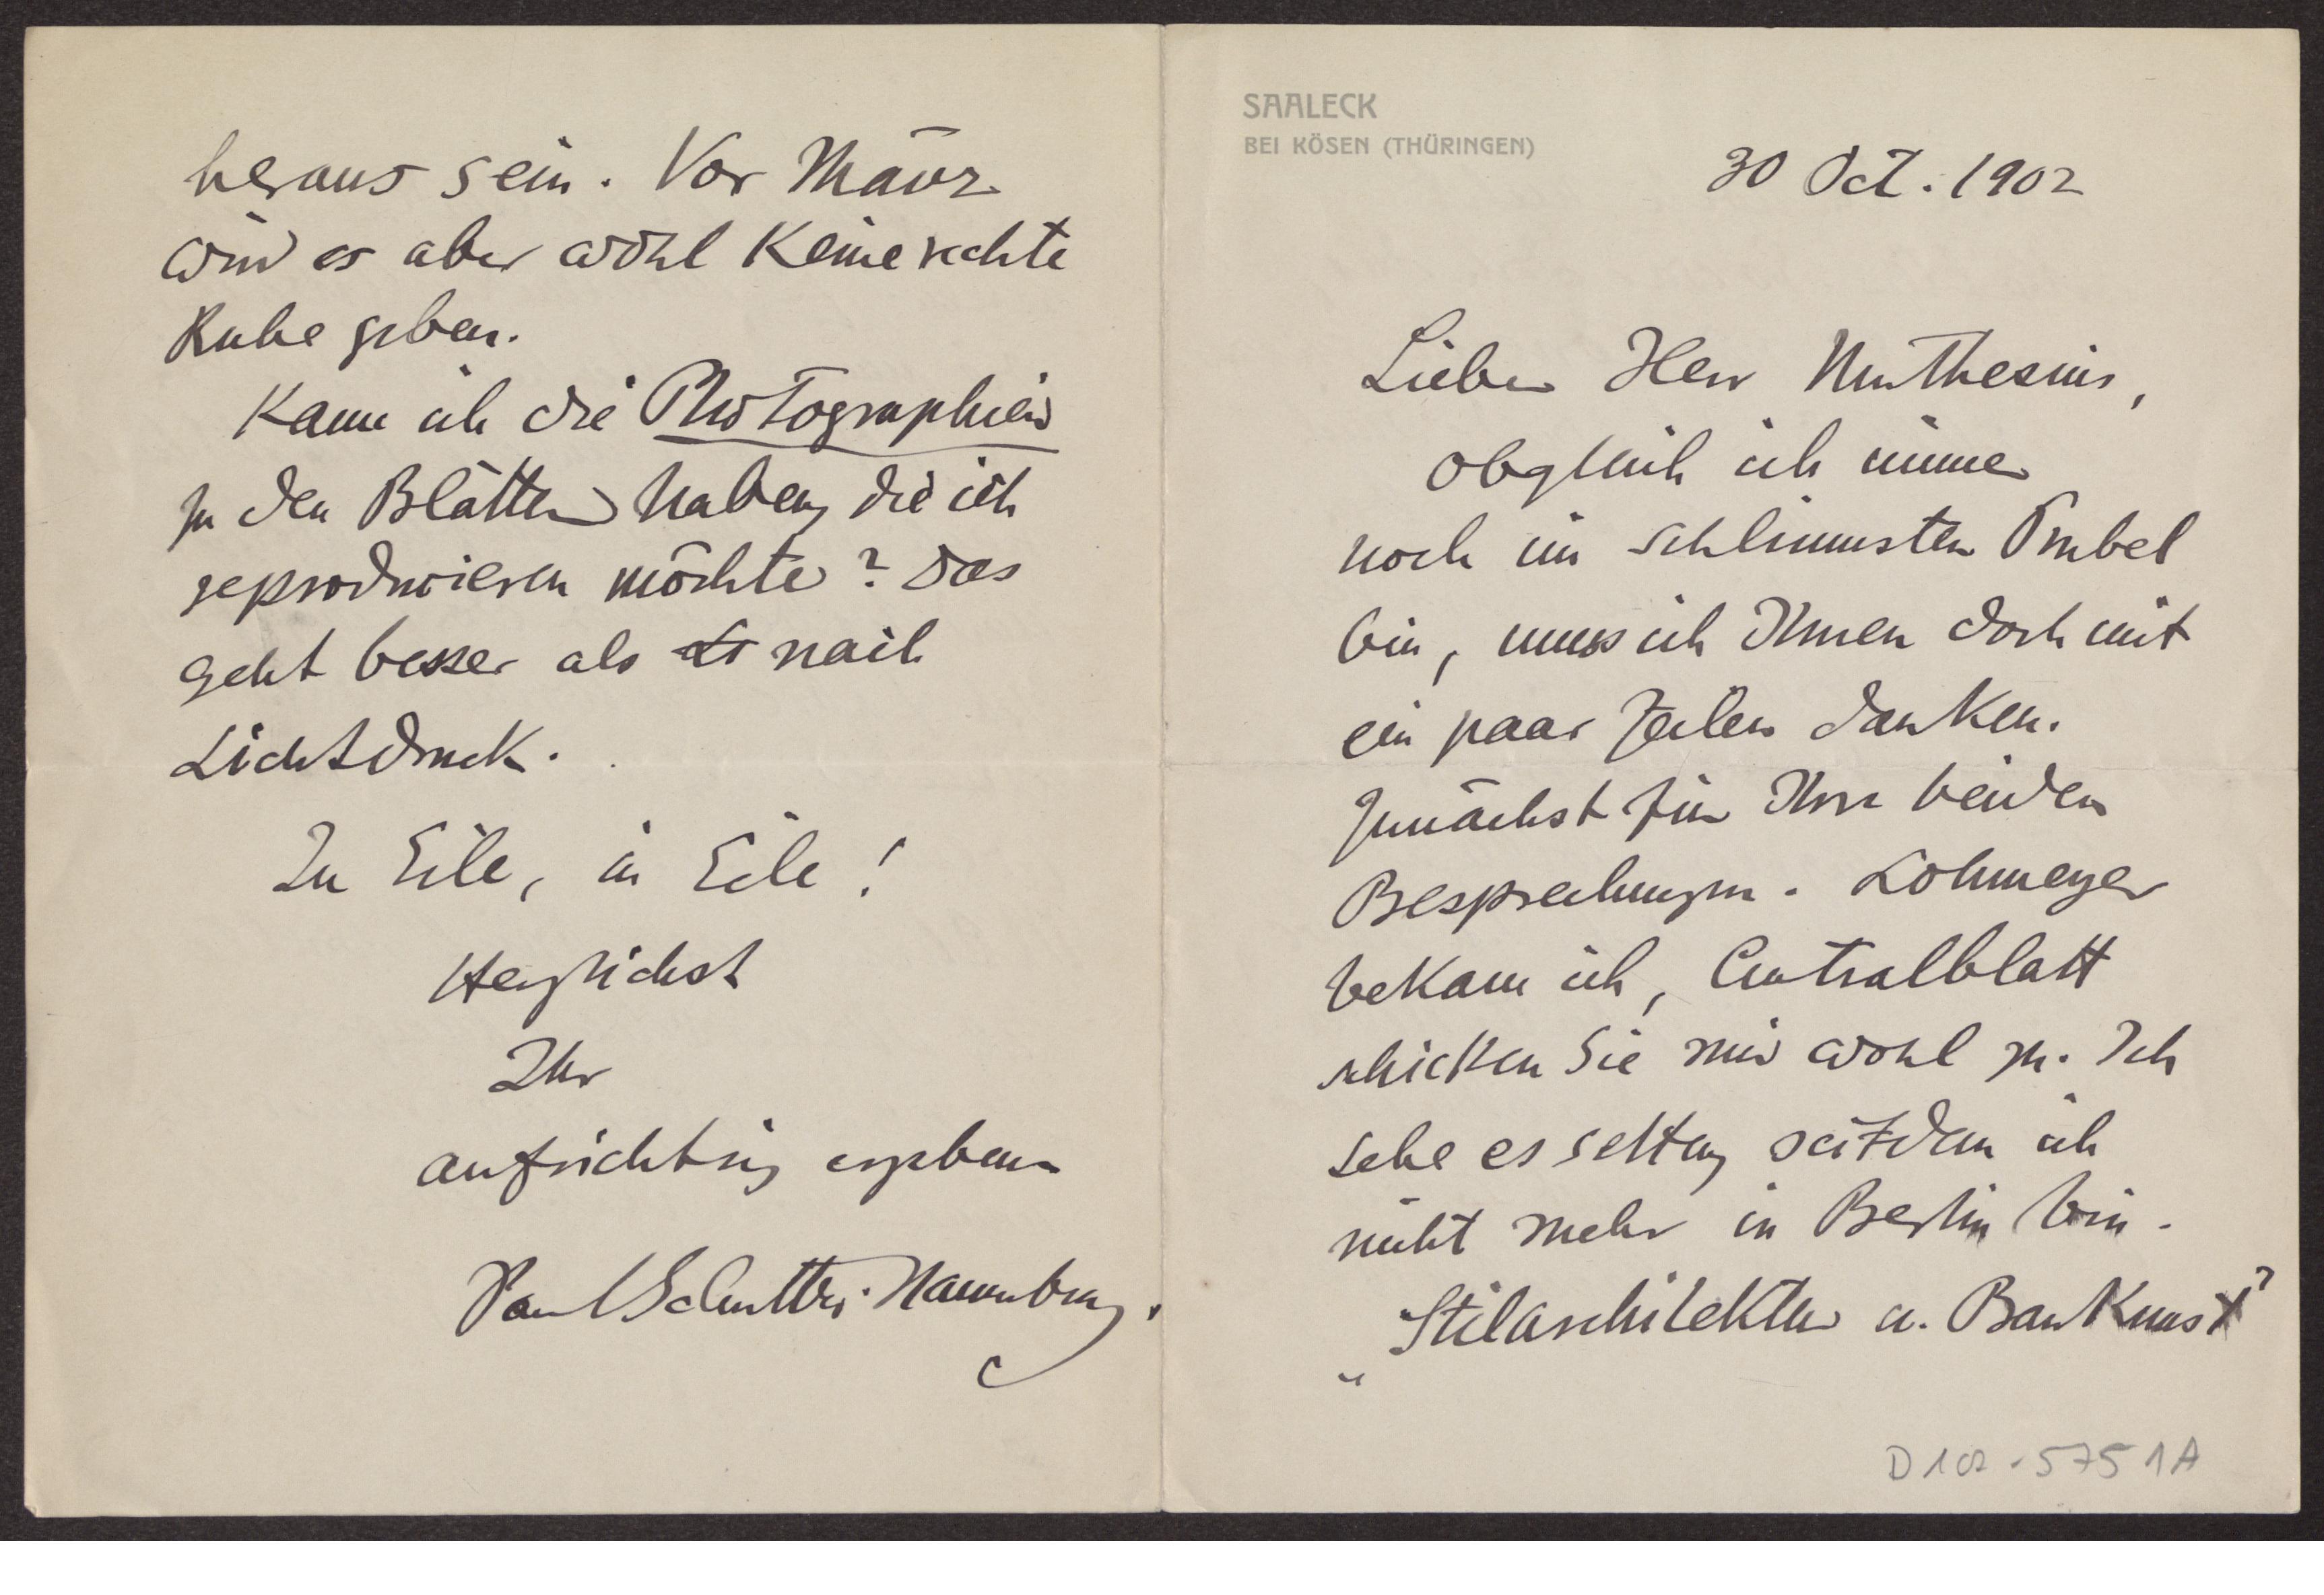 SAALECK
BEI KÖSEN (THÜRINGEN)
30 Oct. 1902
Lieber Herr Muthesius,
obgleich ich immer
noch im schlimmsten Trubel
bin, muss ich Ihnen doch mit
ein paar Zeilen danken.
Zunächst für Ihre beiden
Besprechungen. Lohmeyer
bekam ich, Centralblatt
schicken Sie mir wohl zu. Ich
sehe es selten, seitdem ich
nicht mehr in Berlin bin.
„Stilarchitektur u. Baukunst"
D 102-5751A
heraus sein. Vor März
wird es aber wohl keine rechte
Ruhe geben.
Kann ich die Photographien
zu den Blättern haben, die ich
reproducieren möchte? Das
geht besser als nach
Lichtdruck.
In Eile, in Eile!
Herzlichst
Ihr
aufrichtig ergebener
Paul Schultze-Naumburg.